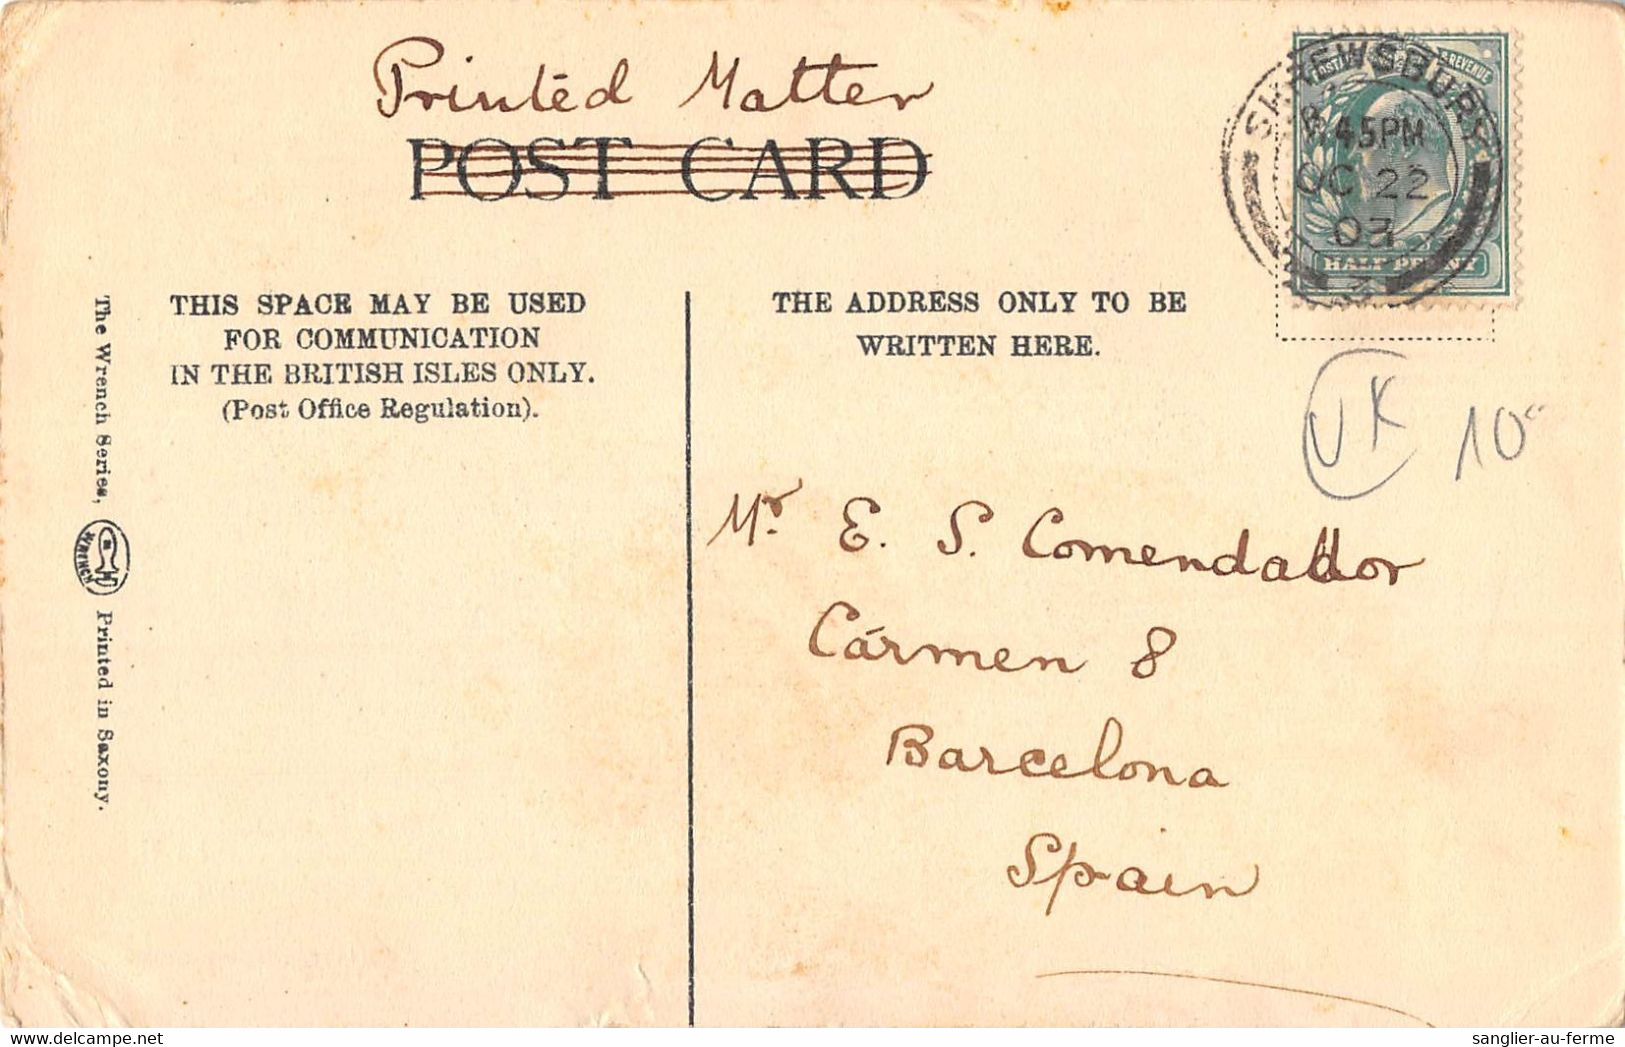 Printed Matter
POST CARD
SHREWSBURY
45PM
OC 22
03
POSTAGE REVENUE
HALF PENNY
THIS SPACE MAY BE USED
FOR COMMUNICATION
IN THE BRITISH ISLES ONLY.
(Post Office Regulation).
THE ADDRESS ONLY TO BE
WRITTEN HERE.
UK 10
The Wrench Series,
WRENCH
Printed in Saxony.
Mr. E. S. Comendador
Cármen 8
Barcelona
Spain
sanglier-au-ferme